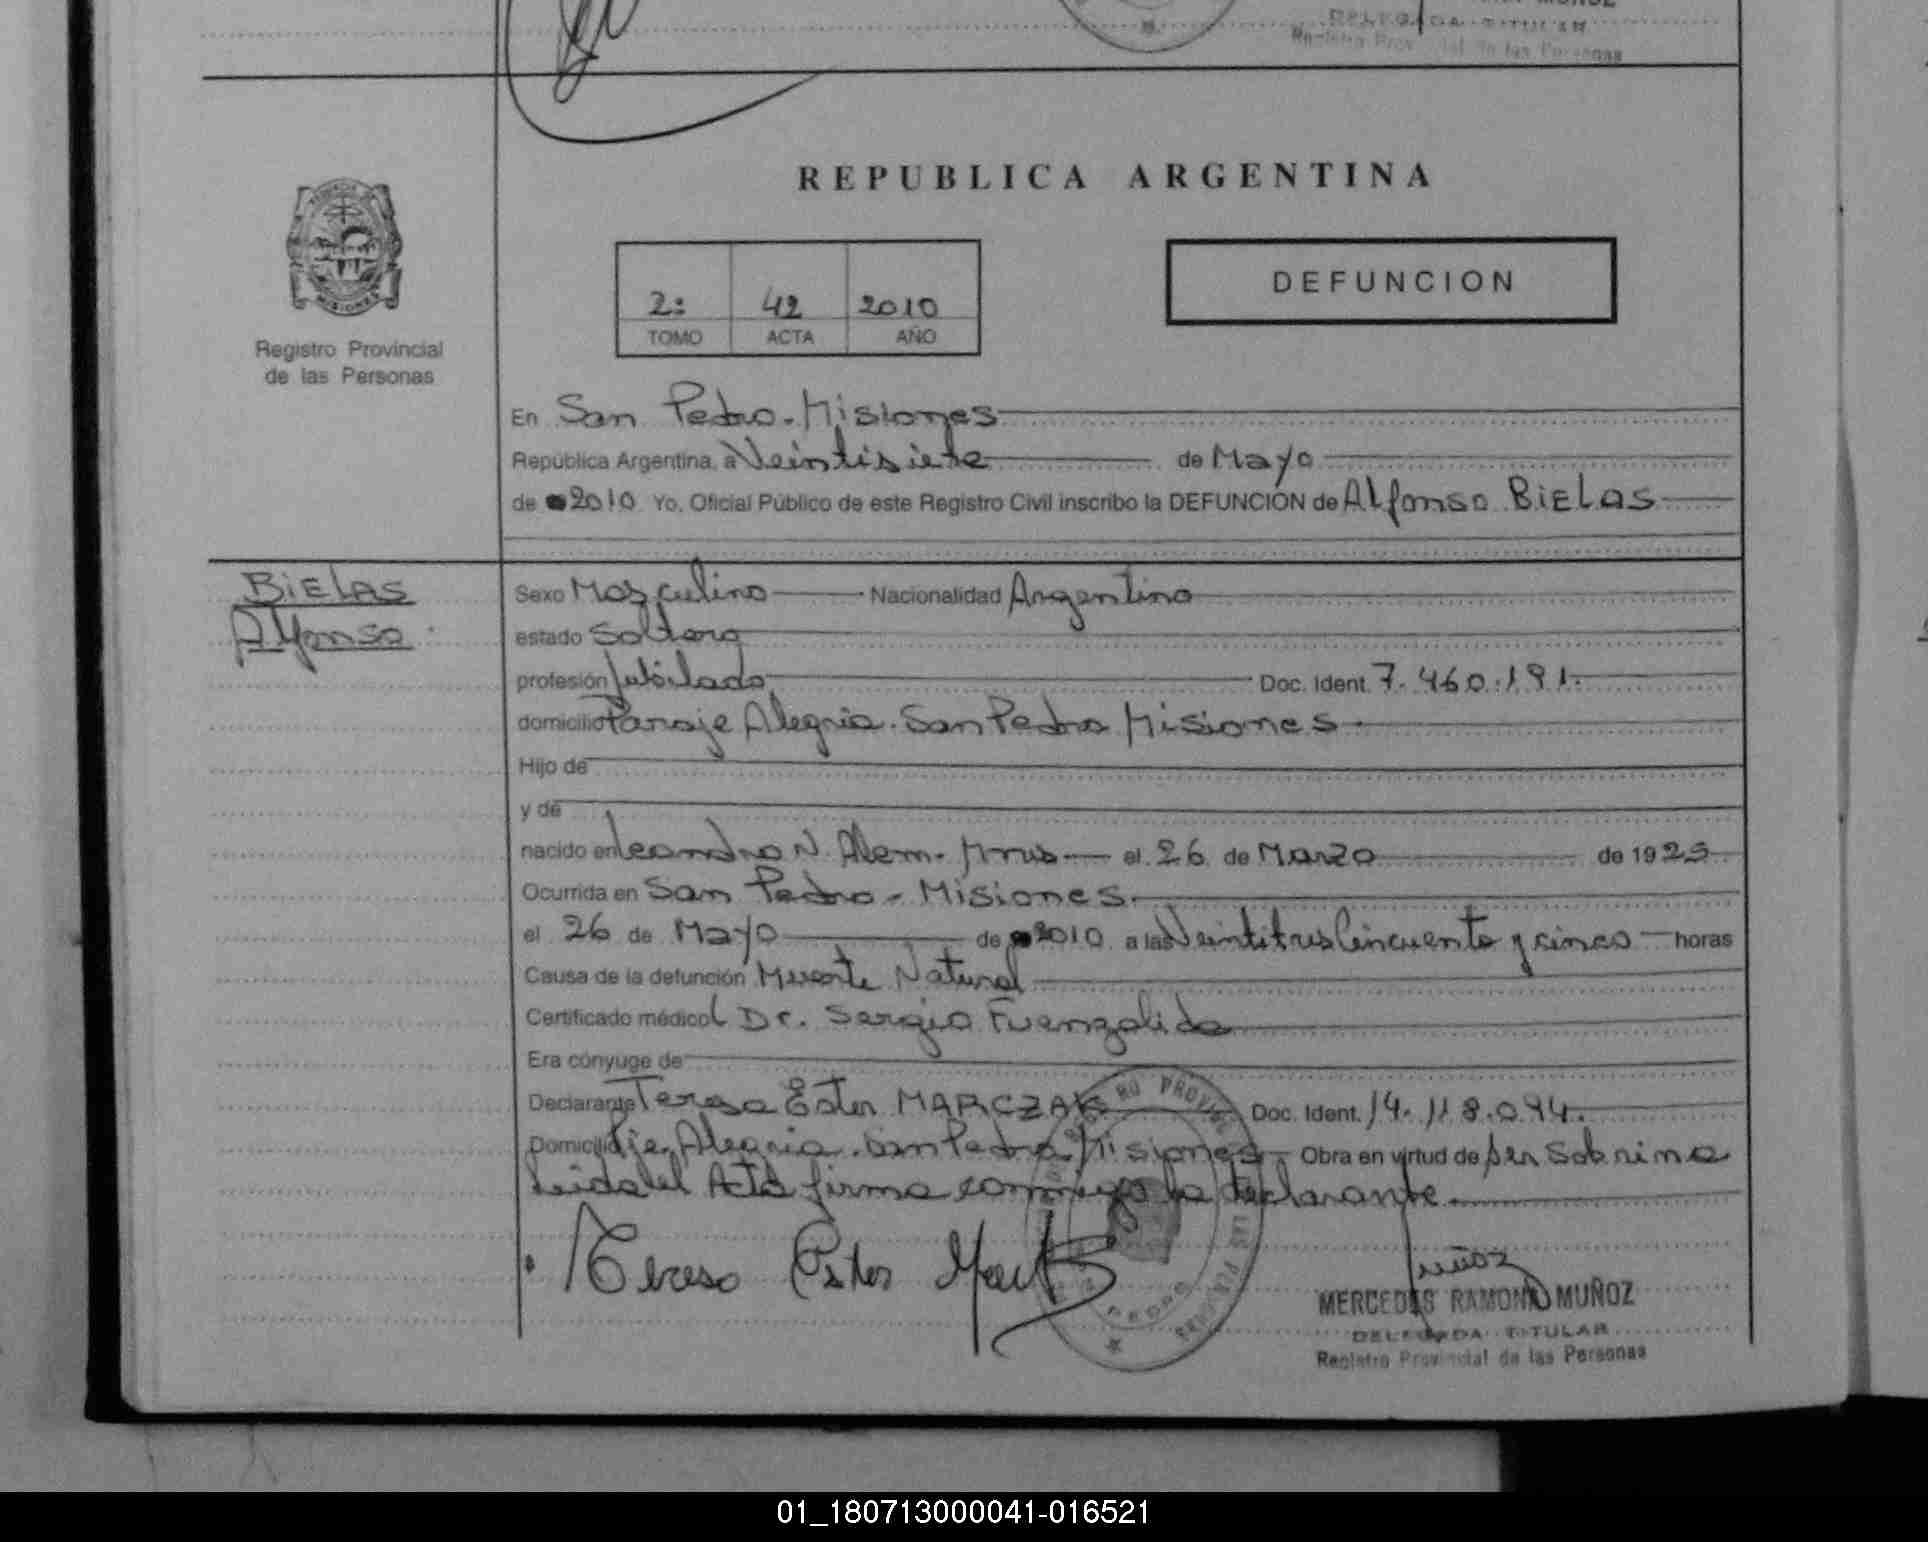 DELEGADA TITULAR
Registro Provincial de las Personas
REPUBLICA ARGENTINA
DEFUNCION
2: 42 2010
TOMO ACTA AÑO
MISIONES
Registro Provincial
de las Personas
En San Pedro - Misiones
República Argentina, a Veintisiete de Mayo
de 2010 Yo, Oficial Público de este Registro Civil inscribo la DEFUNCION de Alfonso BIELAS
BIELAS
Alfonso
Sexo Masculino Nacionalidad Argentino
estado Soltero
profesión Jubilado Doc. Ident. 7.460.191.
domicilio Paraje Alegria. San Pedro Misiones
Hijo de
y de
nacido en Leandro N. Alem - Mnes el 26 de Marzo de 1925
Ocurrida en San Pedro - Misiones.
el 26 de Mayo de 2010 a las Veintitres Cincuenta y cinco horas
Causa de la defunción Muerte Natural
Certificado médico Dr. Sergio Fuenzalida
Era cónyuge de
Declarante Teresa Ester MARCZAK Doc. Ident. 14.118.094.
Domicilio Pje. Alegria. San Pedro Misiones Obra en virtud de ser Sobrina
Leida el Acta firma conmigo la declarante.
Teresa Ester
Muñoz
MERCEDES RAMONA MUÑOZ
DELEGADA TITULAR
Registro Provincial de las Personas
01_180713000041-016521